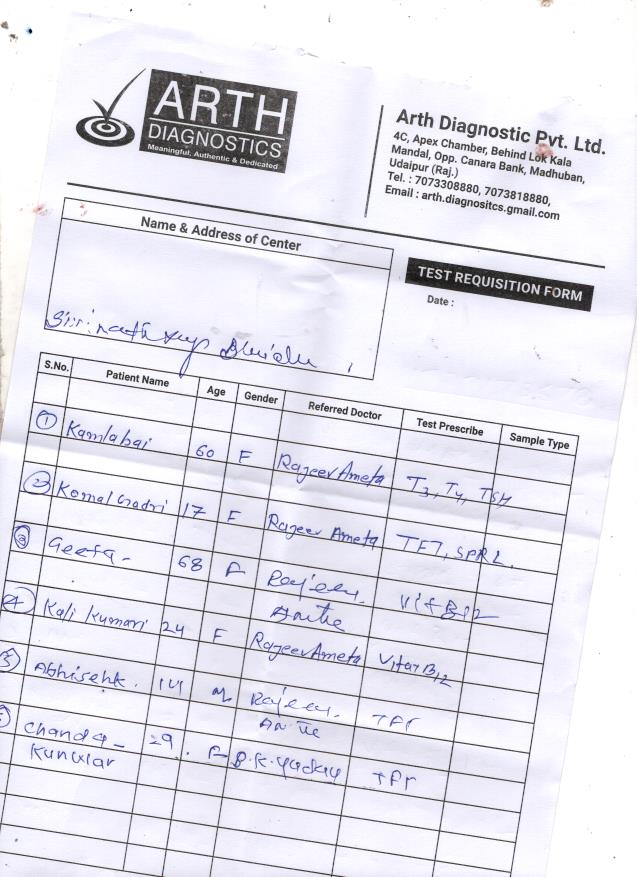 ARTH
DIAGNOSTICS
Meaningful, Authentic & Dedicated
Arth Diagnostic Pvt. Ltd.
4C, Apex Chamber, Behind Lok Kala
Mandal, Opp. Canara Bank, Madhuban,
Udaipur (Raj.)
Tel. : 7073308880, 7073818880,
Email : arth.diagnositcs.gmail.com
Name & Address of Center
TEST REQUISITION FORM
Date :
S.No. Patient Name Age Gender Referred Doctor Test Prescribe Sample Type
1 Kamlabai 60 F Rajeev Ameta T3, T4, TSH
2 Komal Gadri 17 F Rajeev Ameta TFT, SPRL.
3 Geeta - 68 F Rajeev
Vit B12
4 Kali Kumari 24 F Rajeev Ameta Vita B12
5 Abhisehk. M Rajeev
Chanda - 29. F B.K. Yadav
Kunwar